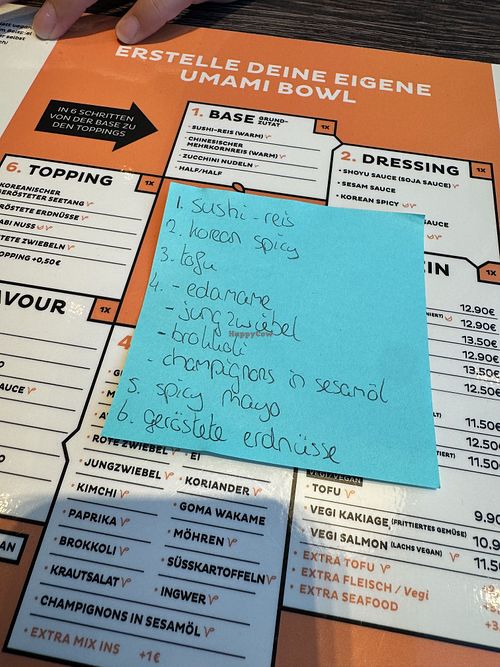 ERSTELLE DEINE EIGENE
UMAMI BOWL
IN 6 SCHRITTEN
VON DER BASE ZU
DEN TOPPINGS
1. BASE GRUND-
ZUTAT
1X
• SUSHI-REIS (WARM)
• CHINESISCHER
MEHRKORNREIS (WARM)
ZUCCHINI NUDELN
• HALF/HALF
2. DRESSING
1X
• SHOYU SAUCE (SOJA SAUCE)
• SESAM SAUCE
• KOREAN SPICY
6. TOPPING
1X
KOREANISCHER
GERÖSTETER SEETANG
RÖSTETE ERDNÜSSE
ABI NUSS
TETE ZWIEBELN
OPPING +0,50€
1. sushi-reis
2. korean spicy
3. tofu
4. - edamame
- jungzwiebel
- brokkoli
- champignons in sesamöl
5. spicy mayo
6. geröstete erdnüsse
HappyCow
EIN
1X
12.90€
13.50€
12.90€
13.50€
12.50€
11.50€
12.50€
11.50€
AVOUR
1X
AUCE
4.
ROTE ZWIEBEL
• EI
• JUNGZWIEBEL
• KORIANDER
• KIMCHI
• GOMA WAKAME
• PAPRIKA
• MÖHREN
• BROKKOLI
• SÜSSKARTOFFELN
• KRAUTSALAT
• INGWER
• CHAMPIGNONS IN SESAMÖL
• EXTRA MIX INS +1€
VEGI/VEGAN
• TOFU
9.90
• VEGI KAKIAGE (FRITTIERTES GEMÜSE)
10.9
• VEGI SALMON (LACHS VEGAN)
11.5
• EXTRA TOFU
• EXTRA FLEISCH / Vegi
• EXTRA SEAFOOD